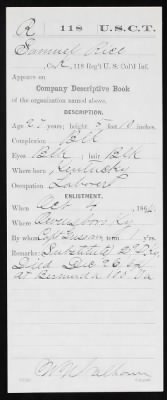 R | 118 | U.S.C.T.
Samuel Rice
, Co. K, 118 Reg't U. S. Col'd Inf.
Appears on
Company Descriptive Book
of the organization named above.
DESCRIPTION.
Age 27 years; height 5 feet 10 inches.
Complexion Blk
Eyes Blk; hair Blk
Where born Kentucky
Occupation Laborer
ENLISTMENT.
When Oct, 1864
Where Owensboro Ky
By whom Capt; term 1 y'rs.
Remarks: Substitute
Died Dec 26
at Bermuda Hd. Va
Calhoun